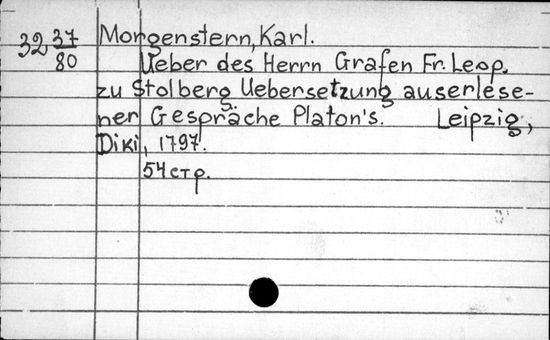 32 37/80 Morgenstern, Karl.
Ueber des Herrn Grafen Fr. Leop.
zu Stolberg Uebersetzung auserlese-
ner Gespräche Platon's. Leipzig,
Diki, 1797.
54 стр.